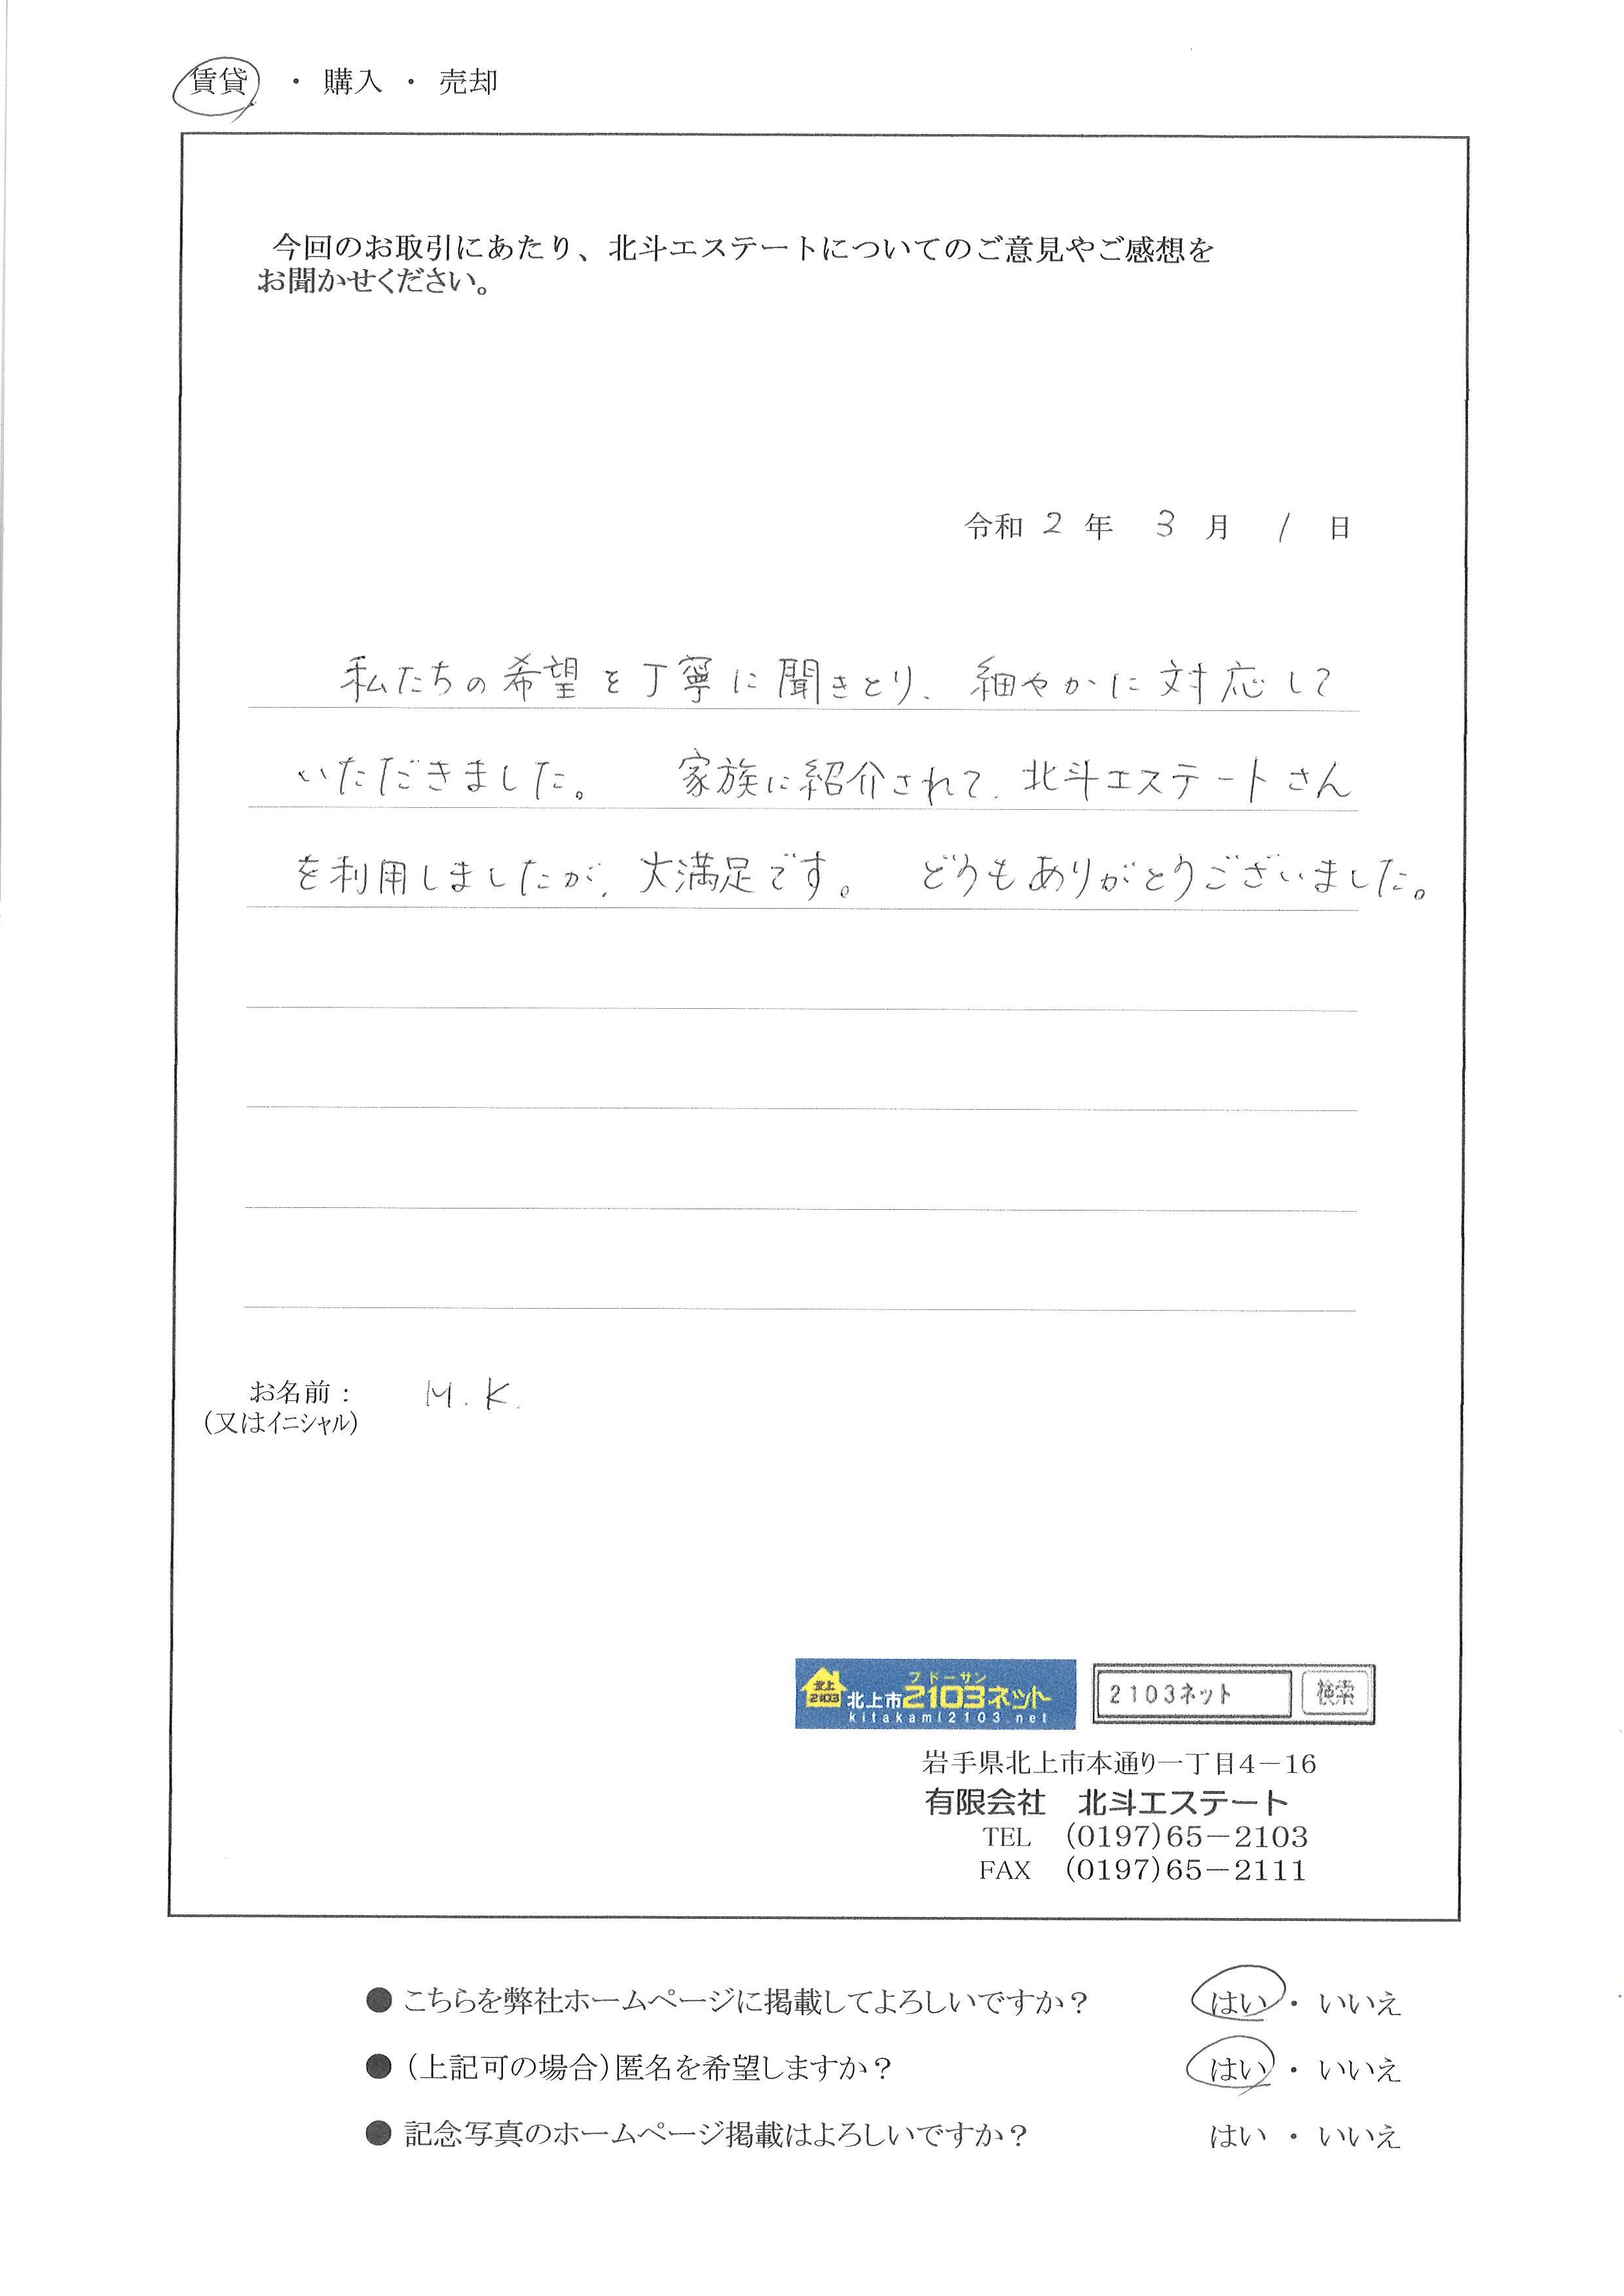 賃貸 ・ 購入 ・ 売却
今回のお取引にあたり、北斗エステートについてのご意見やご感想を
お聞かせください。
令和 2 年 3 月 1 日
私たちの希望を丁寧に聞きとり、細やかに対応して
いただきました。 家族に紹介されて、北斗エステートさん
を利用しましたが、大満足です。 どうもありがとうございました。
お名前： M.K.
（又はイニシャル）
ブドーサン
北上
2103
北上市2103ネット
kitakami2103.net
2103ネット 検索
岩手県北上市本通り一丁目4－16
有限会社 北斗エステート
TEL (0197)65－2103
FAX (0197)65－2111
●こちらを弊社ホームページに掲載してよろしいですか？ はい ・ いいえ
●（上記可の場合）匿名を希望しますか？ はい ・ いいえ
●記念写真のホームページ掲載はよろしいですか？ はい ・ いいえ